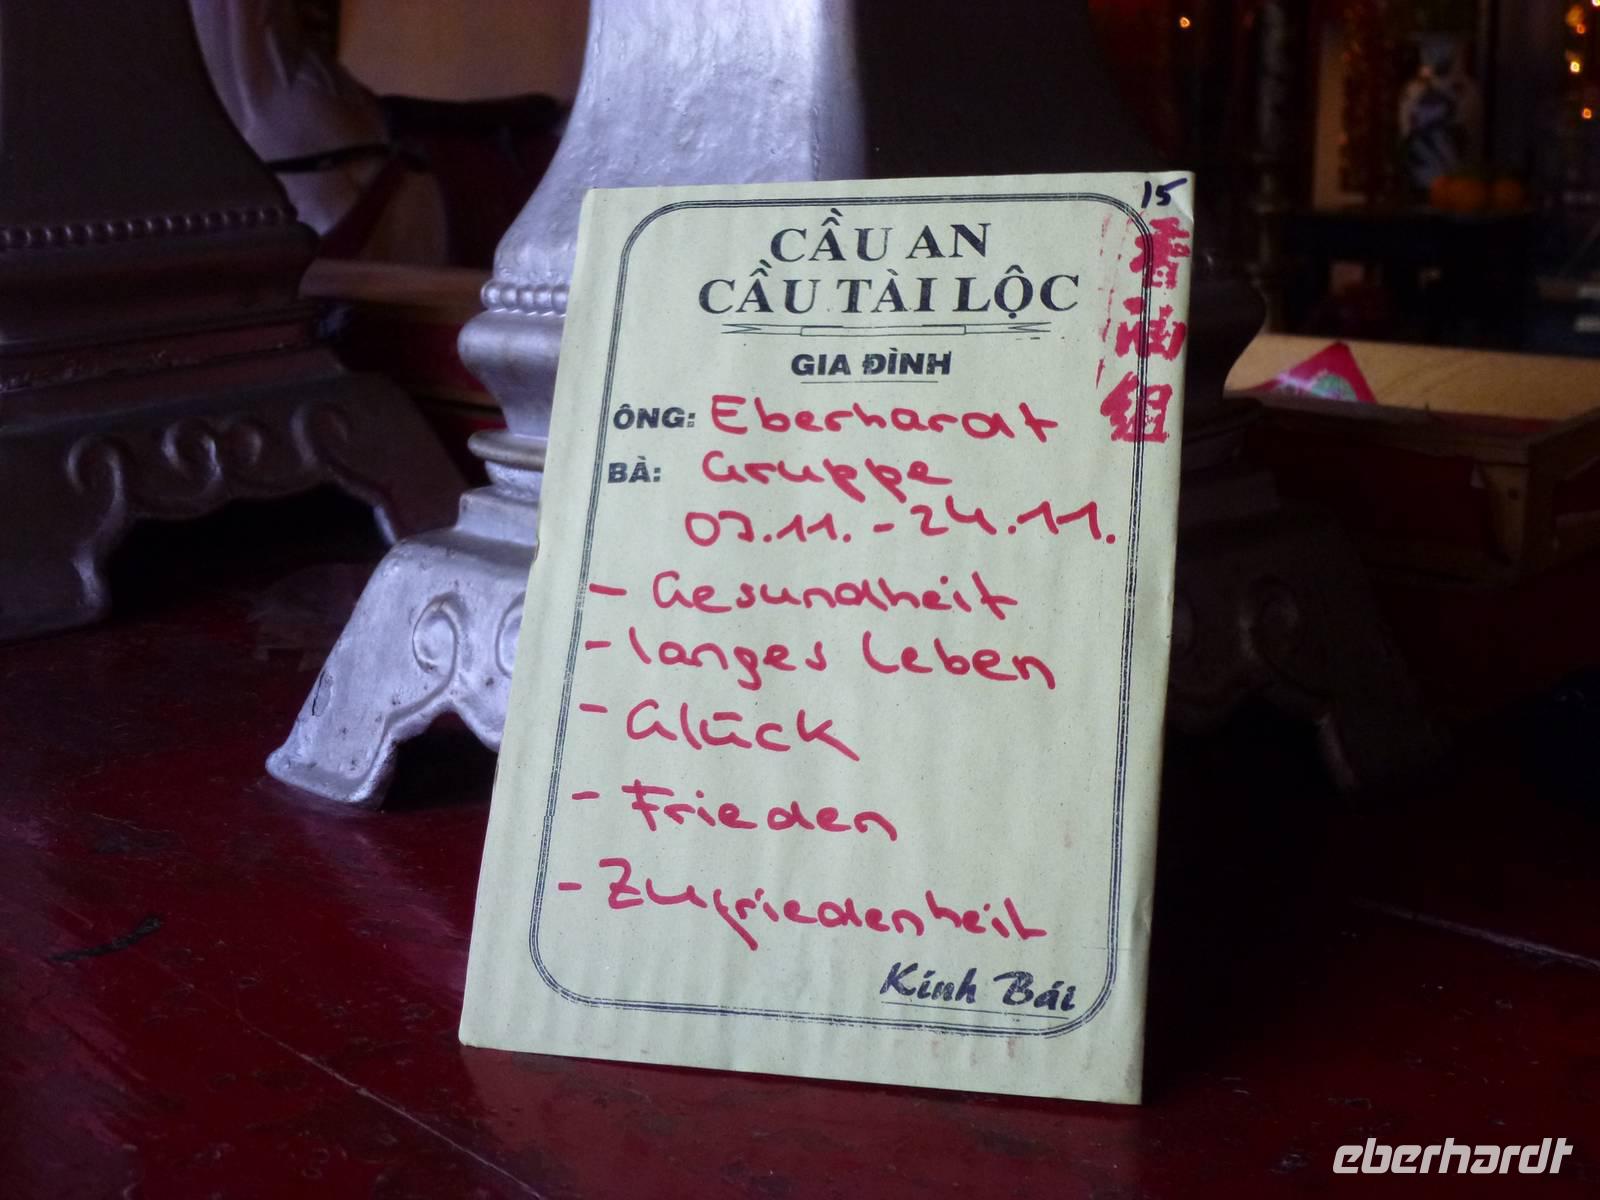 15
CẦU AN
CẦU TÀI LỘC
GIA ĐÌNH
ÔNG: Eberhardt
BÀ: Gruppe
07.11. - 24.11.
- Gesundheit
- langes Leben
- Glück
- Frieden
- Zufriedenheit
Kính Bái
香油組
eberhardt